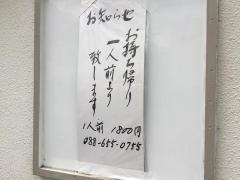 お知らせ
お持ち帰り
一人前より
致します
1人前 1800円
088-655-0755